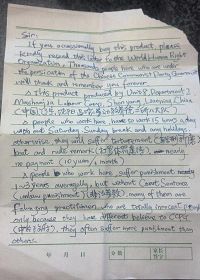 Sir:
If you occasionally buy this product, please
kindly resend this letter to the World Human Right
Organization. Thousands people here who are under
the persecution of the Chinese Communist Party Government
will thank and remember you forever.
This product produced by Unit 8, Department 2
Masanjia Labour Camp, Shenyang, Liaoning, China
people who work here have to work 15 hours a day
with out Saturday, Sunday break and any holidays,
otherwise, they will suffer torturement
beat and rude remark nearly
no payment (10 yuan/month)
People who work here, suffer punishment
1~3 years averagely, but without Court Sentence
(unlaw punishment) many of them are
Falun gong practitioner, who are totally innocent people
only because they have different believe to CCPG
they often suffer more punishment than
others.
年 月 日